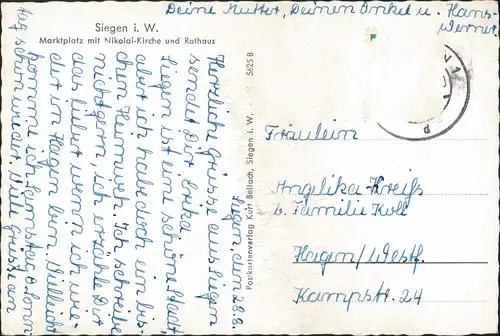 Siegen i. W.
Marktplatz mit Nikolai-Kirche und Rathaus
Siegen, den 28.8.
Herzliche Grüsse aus Siegen
sendet Dir Erika
Siegen ist eine schöne Stadt,
aber ich habe doch ein bis-
chen Heimweh. Ich schreibe
nicht gern, ich erzähle Dir
das lieber wenn ich wie-
der in Hagen bin. Vielleicht
komme ich Samstag o. Sonn-
tag schon wieder. Viele Grüsse an
Deine Mutter, Deinen Onkel u. Hans-
Werner.
5625 B
Postkartenverlag Kurt Bellach, Siegen i. W.
Fräulein
Angelika Kreifs
b. Familie Koll
Hagen/Westf.
Kampstr. 24